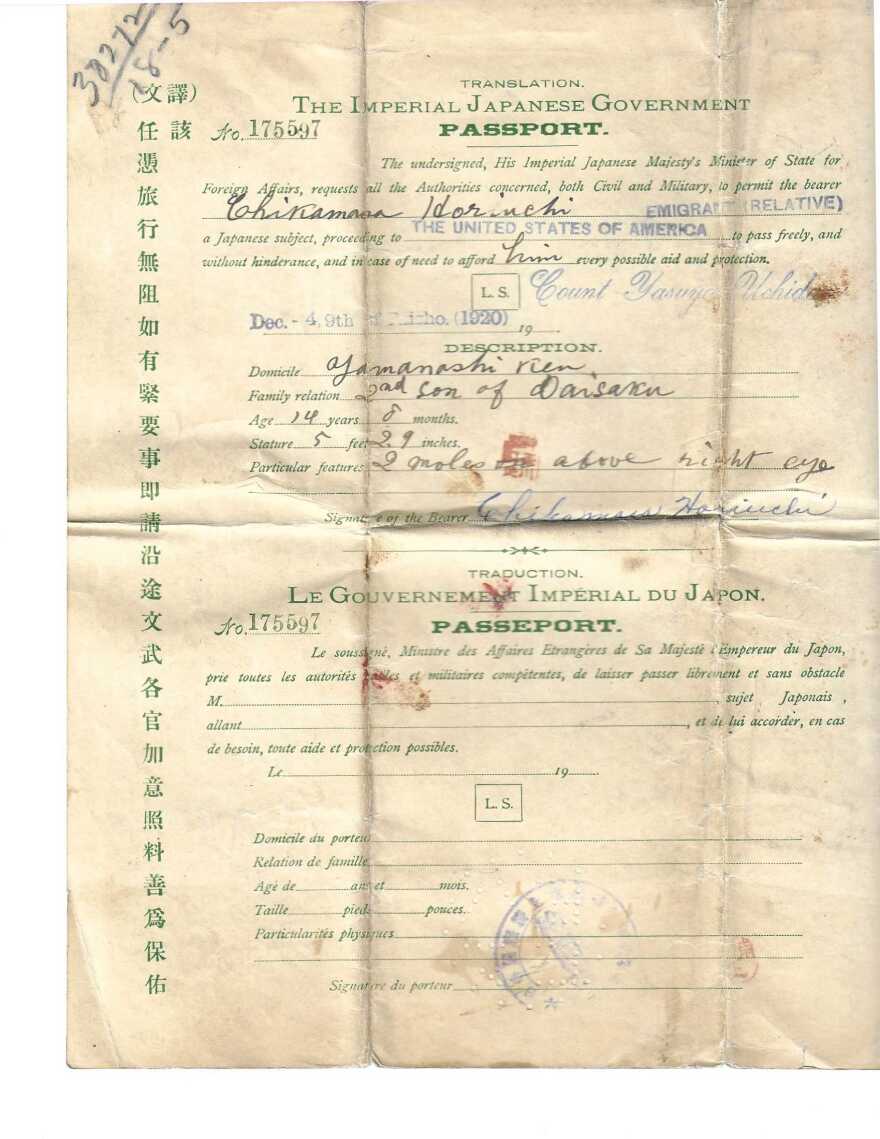 38272
18-5
(文譯)
該
任憑旅行無阻如有緊要事即請沿途文武各官加意照料善爲保佑
TRANSLATION.
THE IMPERIAL JAPANESE GOVERNMENT
No. 175597 PASSPORT.
The undersigned, His Imperial Japanese Majesty's Minister of State for
Foreign Affairs, requests all the Authorities concerned, both Civil and Military, to permit the bearer
Chikamasa Horiuchi EMIGRANT (RELATIVE)
a Japanese subject, proceeding to THE UNITED STATES OF AMERICA to pass freely, and
without hinderance, and in case of need to afford him every possible aid and protection.
L. S. Count Yasuya Uchida
Dec. - 4, 9th of Taisho. (1920) 19
DESCRIPTION.
Domicile Yamanashi Ken
Family relation 2nd son of Daisaku
Age 14 years 8 months.
Stature 5 feet 2.9 inches.
Particular features 2 moles on above right eye
Signature of the Bearer Chikamasa Horiuchi
TRADUCTION.
LE GOUVERNEMENT IMPÉRIAL DU JAPON.
No. 175597 PASSEPORT.
Le soussigné, Ministre des Affaires Etrangères de Sa Majesté l'Empereur du Japon,
prie toutes les autorités civiles et militaires compétentes, de laisser passer librement et sans obstacle
M. , sujet Japonais ,
allant , et de lui accorder, en cas
de besoin, toute aide et protection possibles.
Le 19
L. S.
Domicile du porteur
Relation de famille
Agé de ans et mois.
Taille pieds pouces.
Particularités physiques
Signature du porteur